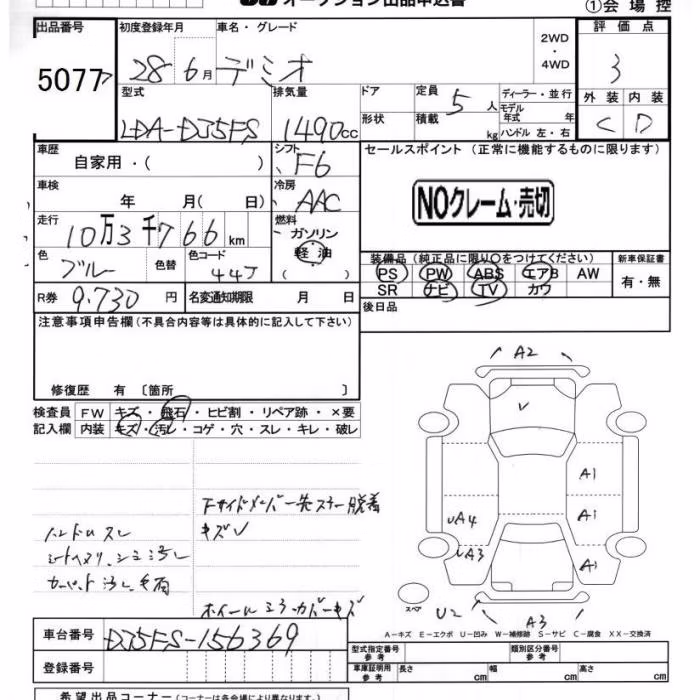 オークション出品申込書
①会場控
出品番号 5077
初度登録年月 28 6月
車名・グレード デミオ
2WD・4WD
評価点 3
型式 LDA-DJ5FS
排気量 1490cc
ドア
形状
定員 5人
積載 kg
ディーラー・並行
モデル年式 年
ハンドル 左・右
外装 C 内装 D
車歴 自家用・( )
シフト F6
セールスポイント (正常に機能するものに限ります)
NOクレーム・売切
車検 年 月( 日)
冷房 AAC
走行 10万3千766km
燃料 ガソリン 軽油 ( )
色 ブルー 色替
色コード 44J
装備品(純正品に限り○をつけてください)
PS PW ABS エアB AW
SR ナビ TV カワ
新車保証書 有・無
R券 9.730円
名変通知期限 月 日
後日品
注意事項申告欄(不具合内容等は具体的に記入して下さい)
修復歴 有 〔箇所 〕
検査員記入欄
FW キズ・飛石・ヒビ割・リペア跡・×要
内装 キズ・汚レ・コゲ・穴・スレ・キレ・破レ
下サイドメンバー先ステー脱着
キズ
ハンドルスレ
A2
A1
UA4
A1
UA3
A1
スペア
U2
A3
A−キズ E−エクボ U−凹み W−補修跡 S−サビ C−腐食 XX−交換済
車台番号 DJ5FS-156369
登録番号
型式指定番号 参考
類別区分番号 参考
車庫証明用 参考 長さ cm 幅 cm 高さ cm
希望出品コーナー(コーナーは各会場により異なります)